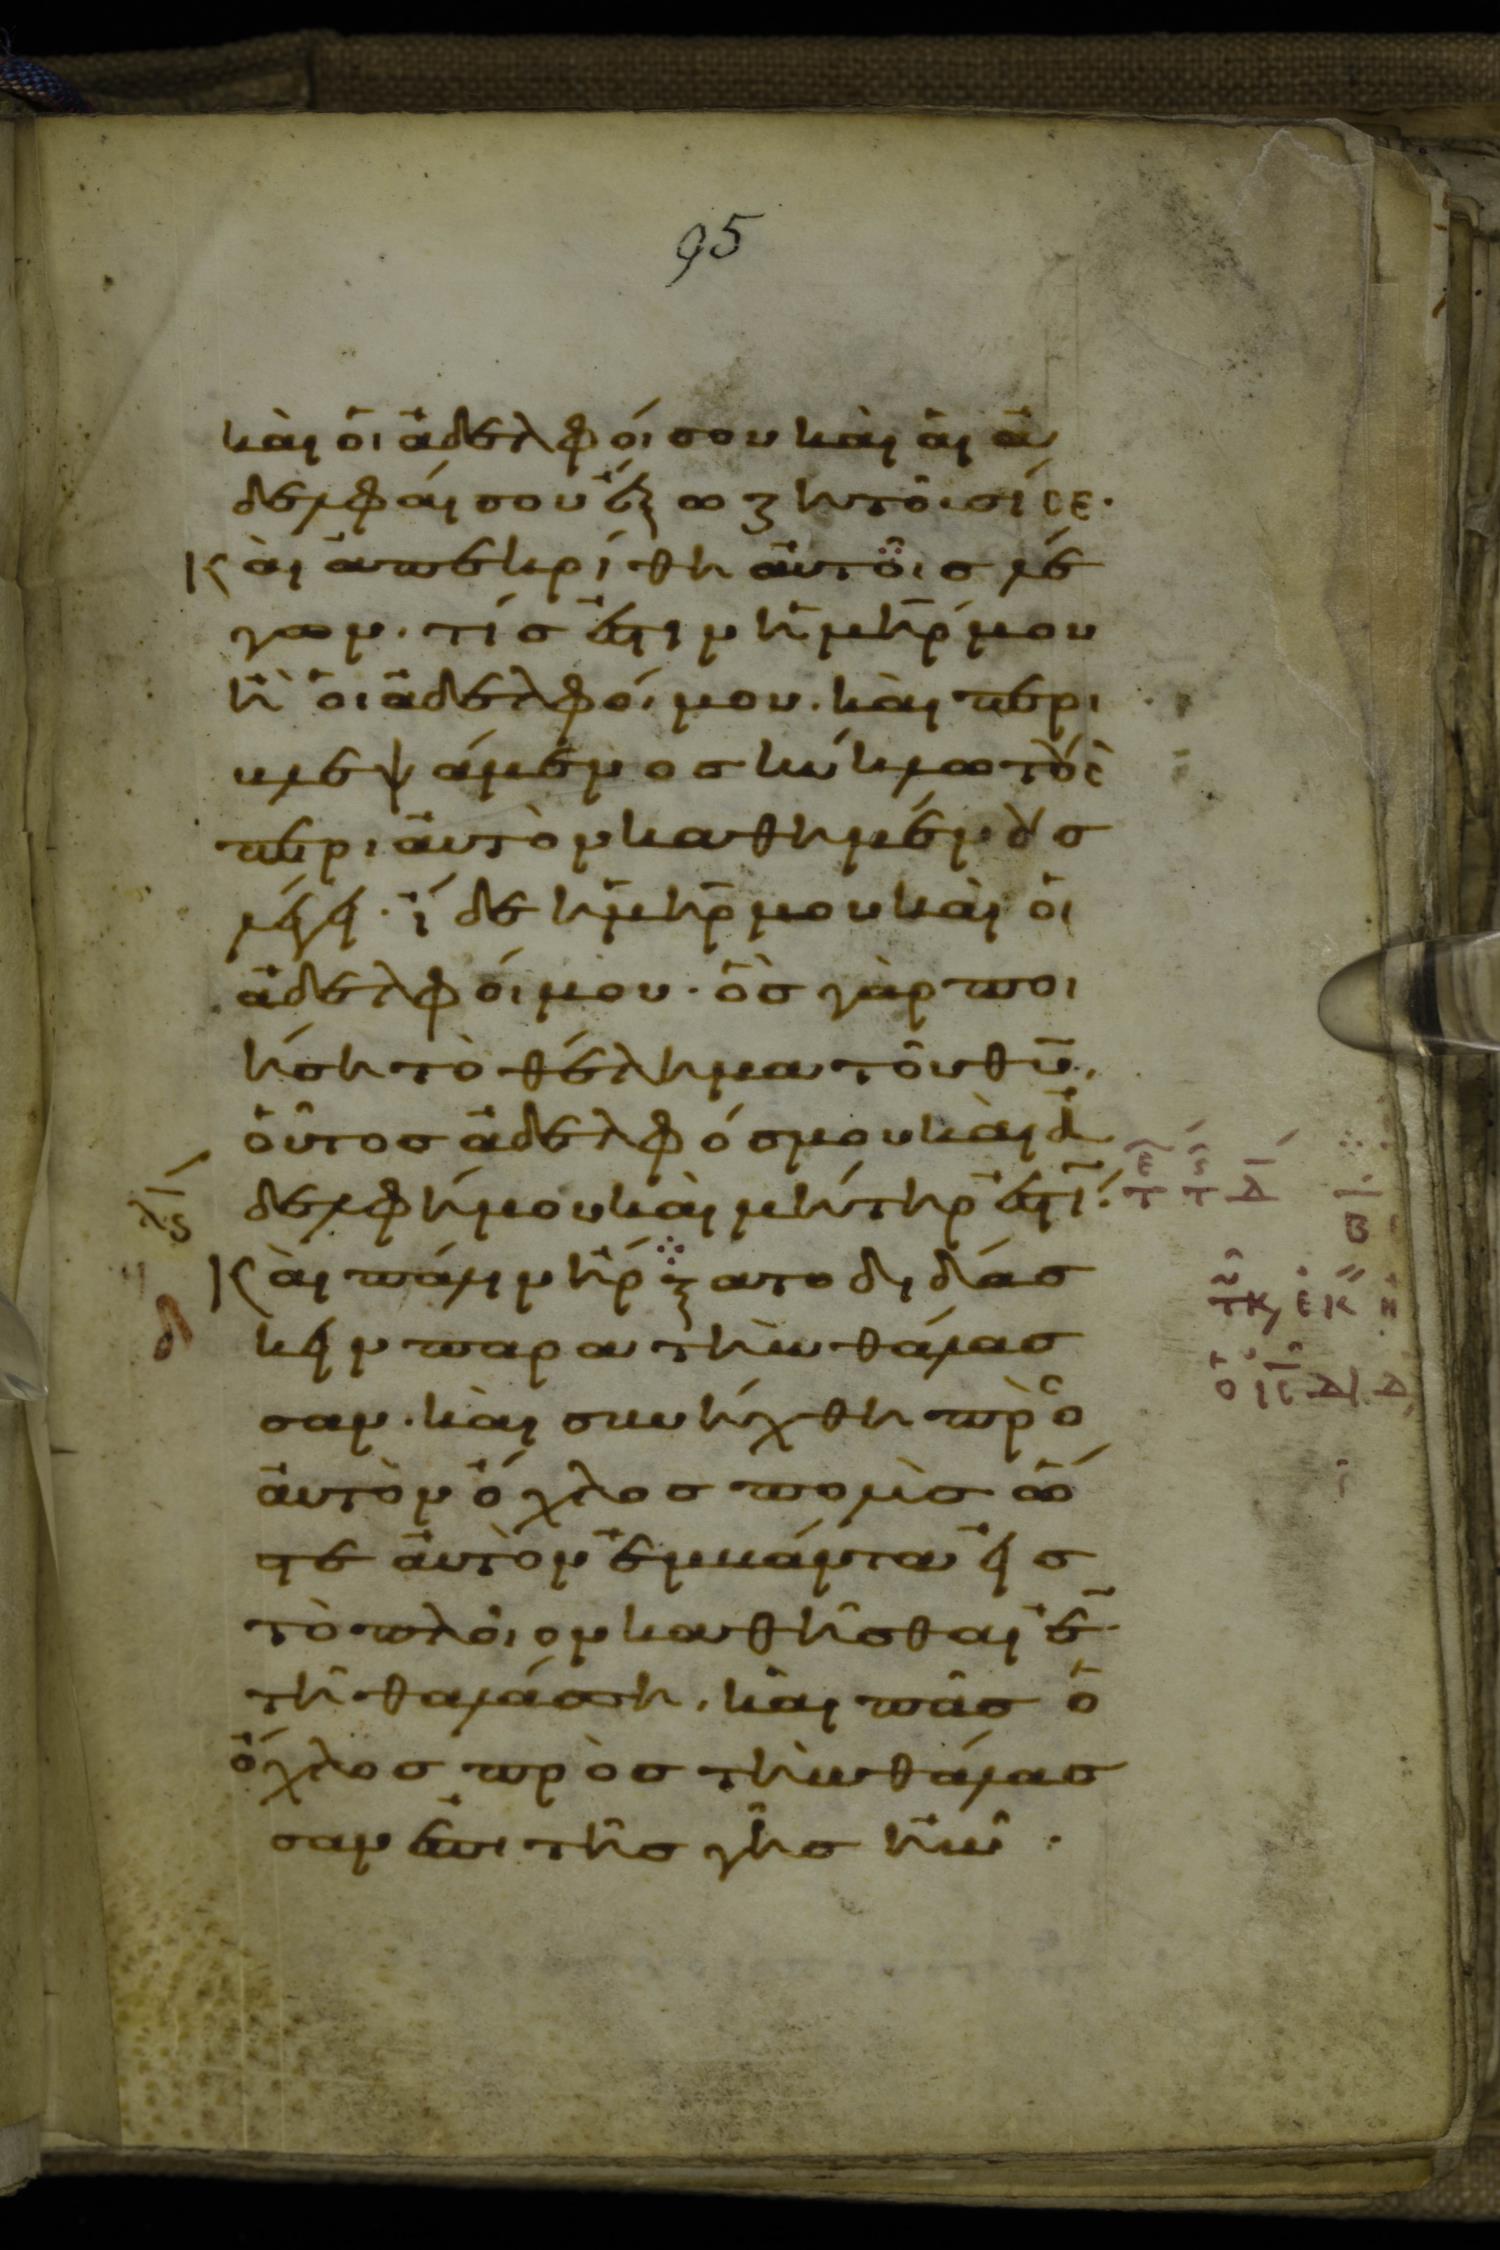 95
καὶ οἱ ἀδελφοί σου καὶ αἱ ἀ
δελφαί σου ἔξω ζητοῦσί σε·
Καὶ ἀπεκρίθη αὐτοῖς λέ
γων· τίς ἐστιν ἡ μηρ̄ μου
ἢ οἱ ἀδελφοί μου· καὶ περι
βλεψάμενος κύκλω τοὺς
περὶ αὐτὸν καθημένους
λέγει· ἴδε ἡ μηρ̄ μου καὶ οἱ
ἀδελφοί μου· ὃς γὰρ ποι
ήση τὸ θέλημα τοῦ θῡ,
οὗτος ἀδελφός μου καὶ ἀ
δελφή μου καὶ μήτηρ ἐστί:
λς
Καὶ πάλιν ἤρξατο διδάσ
κειν παρα τὴν θάλασ
σαν· καὶ συνήχθη πρὸς
αὐτὸν ὄχλος πολὺς ὥσ
τε αὐτὸν ἐμβάντα εἰς
τὸ πλοῖον καθῆσθαι ἐν
τῆ θαλάσση, καὶ πᾶς ὁ
ὄχλος πρὸς τὴν θάλασ
σαν ἐπι τῆς γῆς ἦν·